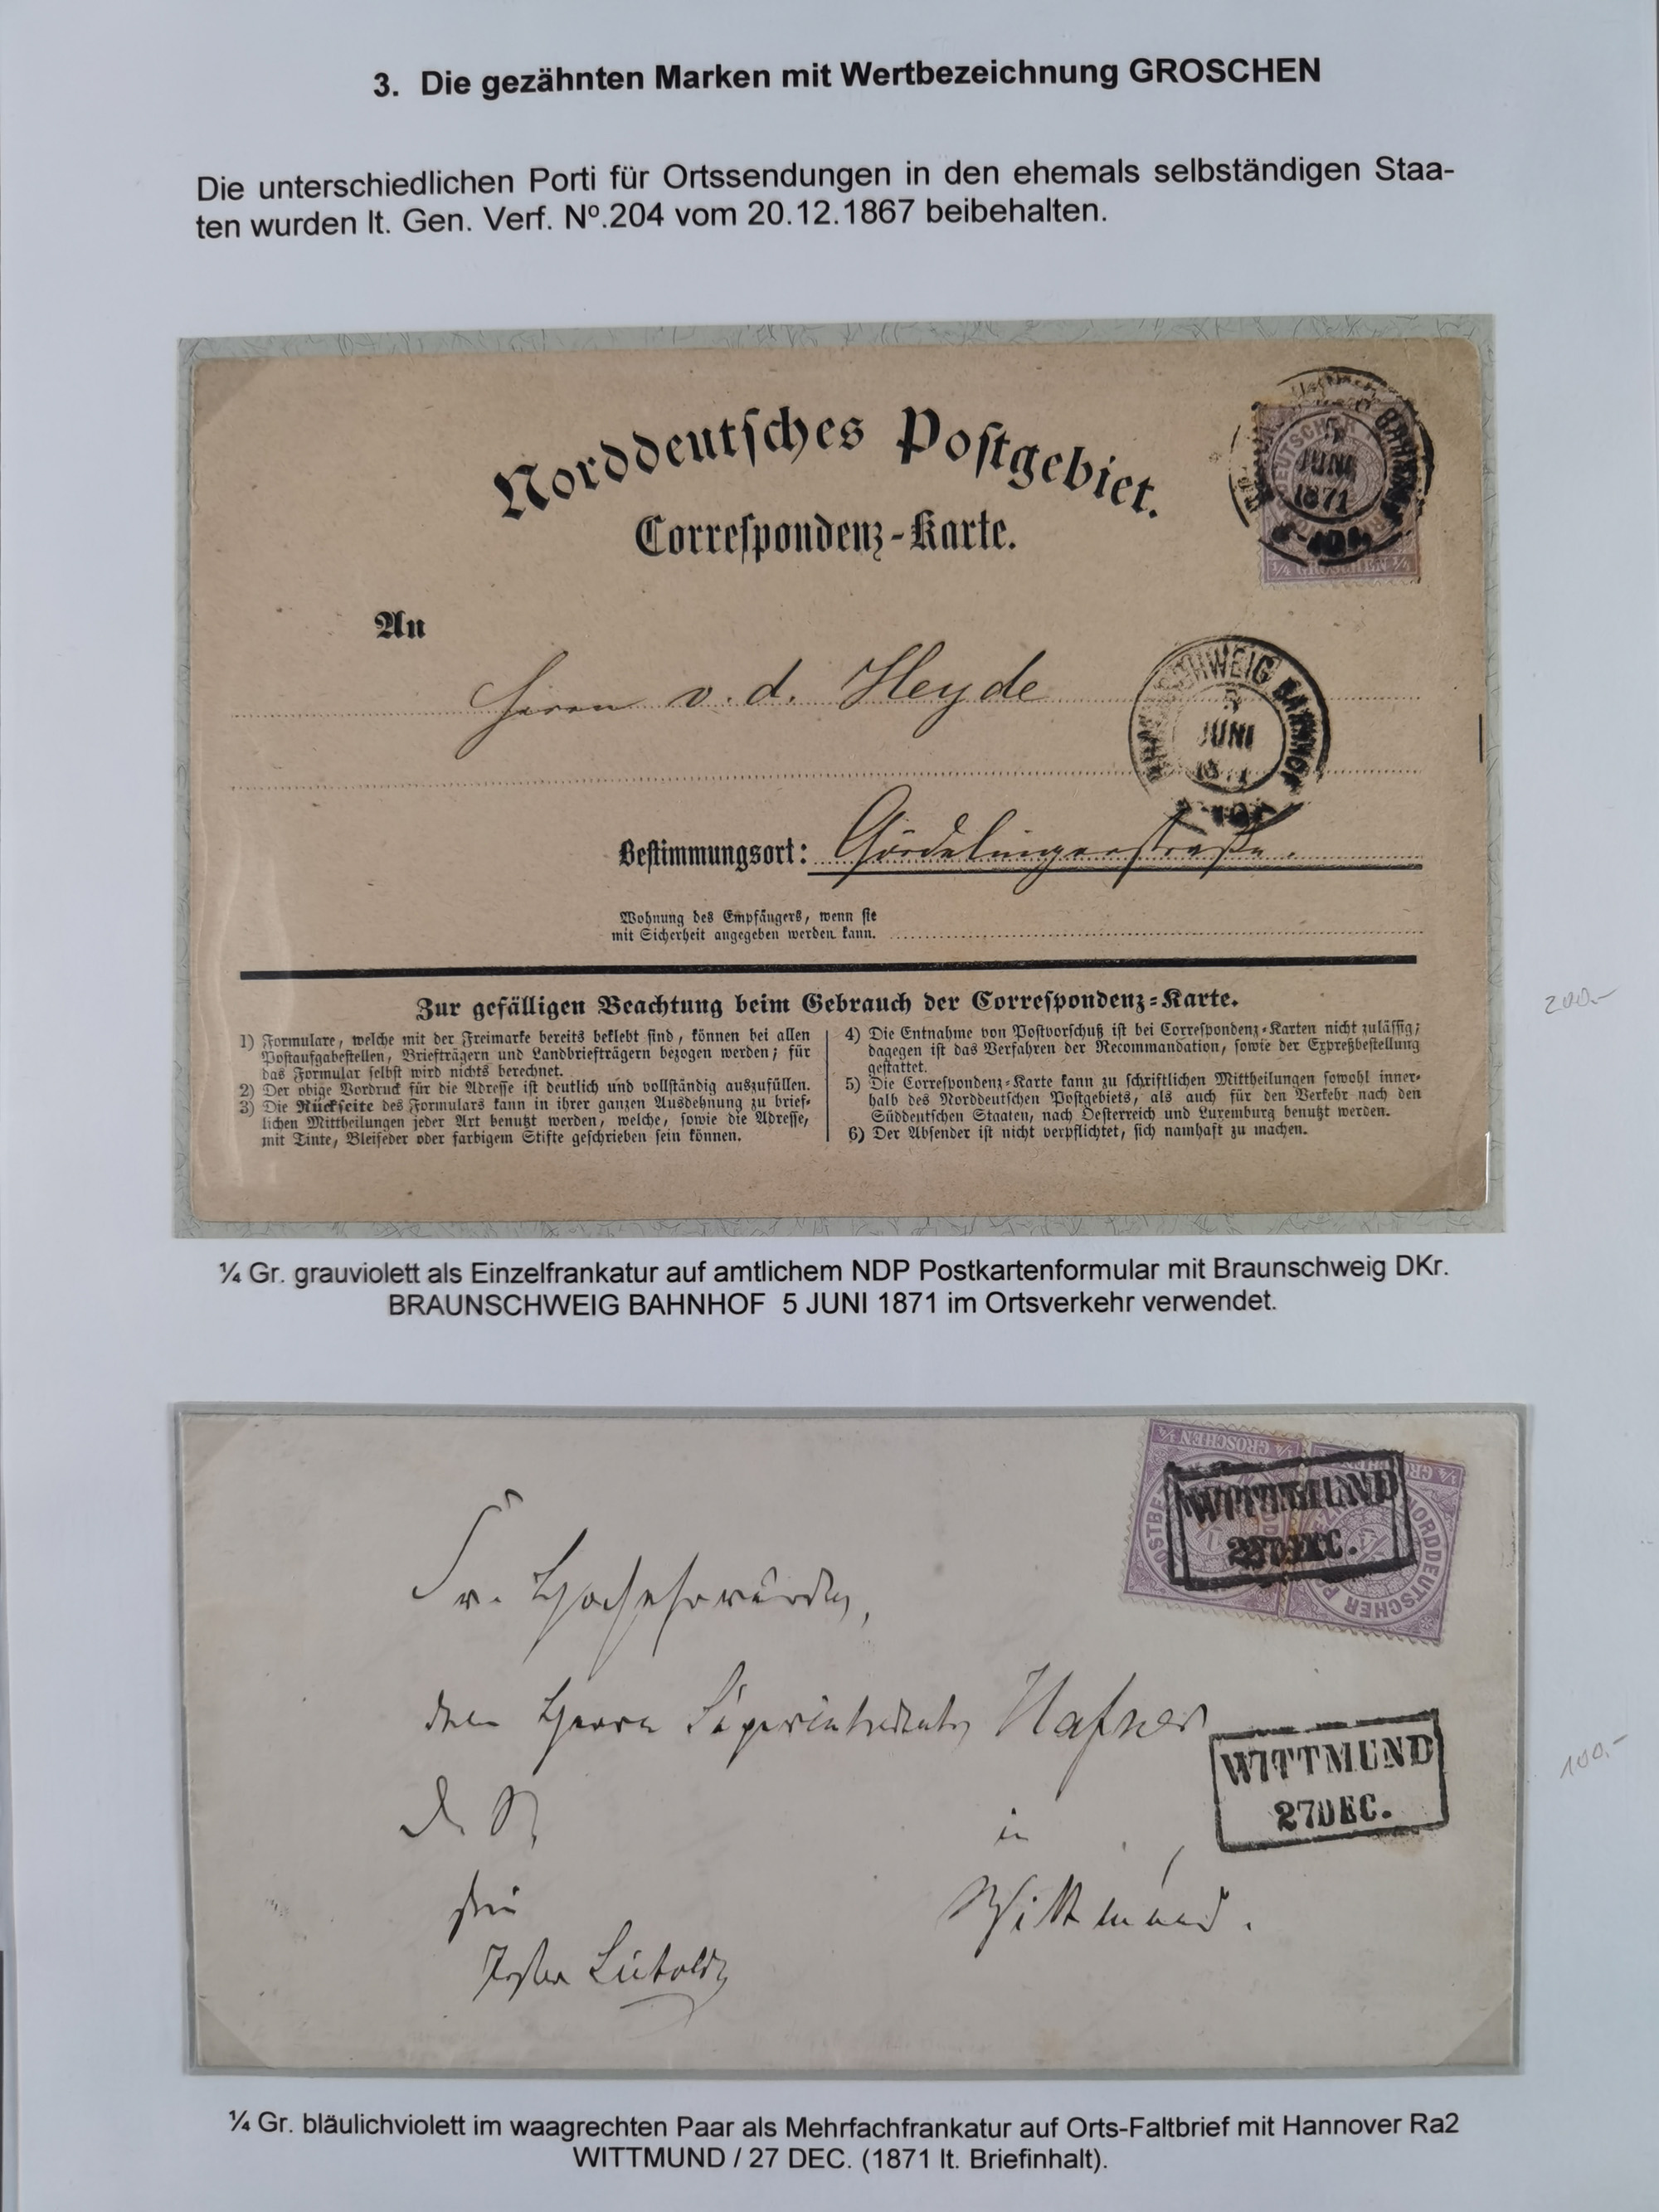 3. Die gezähnten Marken mit Wertbezeichnung GROSCHEN
Die unterschiedlichen Porti für Ortssendungen in den ehemals selbständigen Staa-
ten wurden lt. Gen. Verf. Nº.204 vom 20.12.1867 beibehalten.
Norddeutſches Poſtgebiet.
Correſpondenz-Karte.
BAHNHOF
5
JUNI
1871
¼ GROSCHEN ¼
An
Herrn v. d. Heyde
BRAUNSCHWEIG BAHNHOF
5
JUNI
1871
Beſtimmungsort: Gördelingerstraße.
Wohnung des Empfängers, wenn ſie
mit Sicherheit angegeben werden kann.
Zur gefälligen Beachtung beim Gebrauch der Correſpondenz-Karte.
1) Formulare, welche mit der Freimarke bereits beklebt ſind, können bei allen
Poſtaufgabeſtellen, Briefträgern und Landbriefträgern bezogen werden; für
das Formular ſelbſt wird nichts berechnet.
2) Der obige Vordruck für die Adreſſe iſt deutlich und vollſtändig auszufüllen.
3) Die Rückſeite des Formulars kann in ihrer ganzen Ausdehnung zu brief-
lichen Mittheilungen jeder Art benutzt werden, welche, ſowie die Adreſſe,
mit Tinte, Bleifeder oder farbigem Stifte geſchrieben ſein können.
4) Die Entnahme von Poſtvorſchuß iſt bei Correſpondenz-Karten nicht zuläſſig;
dagegen iſt das Verfahren der Recommandation, ſowie der Expreßbeſtellung
geſtattet.
5) Die Correſpondenz-Karte kann zu ſchriftlichen Mittheilungen ſowohl inner-
halb des Norddeutſchen Poſtgebiets, als auch für den Verkehr nach den
Süddeutſchen Staaten, nach Oeſterreich und Luxemburg benutzt werden.
6) Der Abſender iſt nicht verpflichtet, ſich namhaft zu machen.
200.-
¼ Gr. grauviolett als Einzelfrankatur auf amtlichem NDP Postkartenformular mit Braunschweig DKr.
BRAUNSCHWEIG BAHNHOF 5 JUNI 1871 im Ortsverkehr verwendet.
¼ GROSCHEN ¼
NORDDEUTSCHER
WITTMUND
27DEC.
Sr. Hochehrwürden,
dem Herrn Superintendenten Hafner
in
Wittmund.
WITTMUND
27DEC.
100.-
¼ Gr. bläulichviolett im waagrechten Paar als Mehrfachfrankatur auf Orts-Faltbrief mit Hannover Ra2
WITTMUND / 27 DEC. (1871 lt. Briefinhalt).